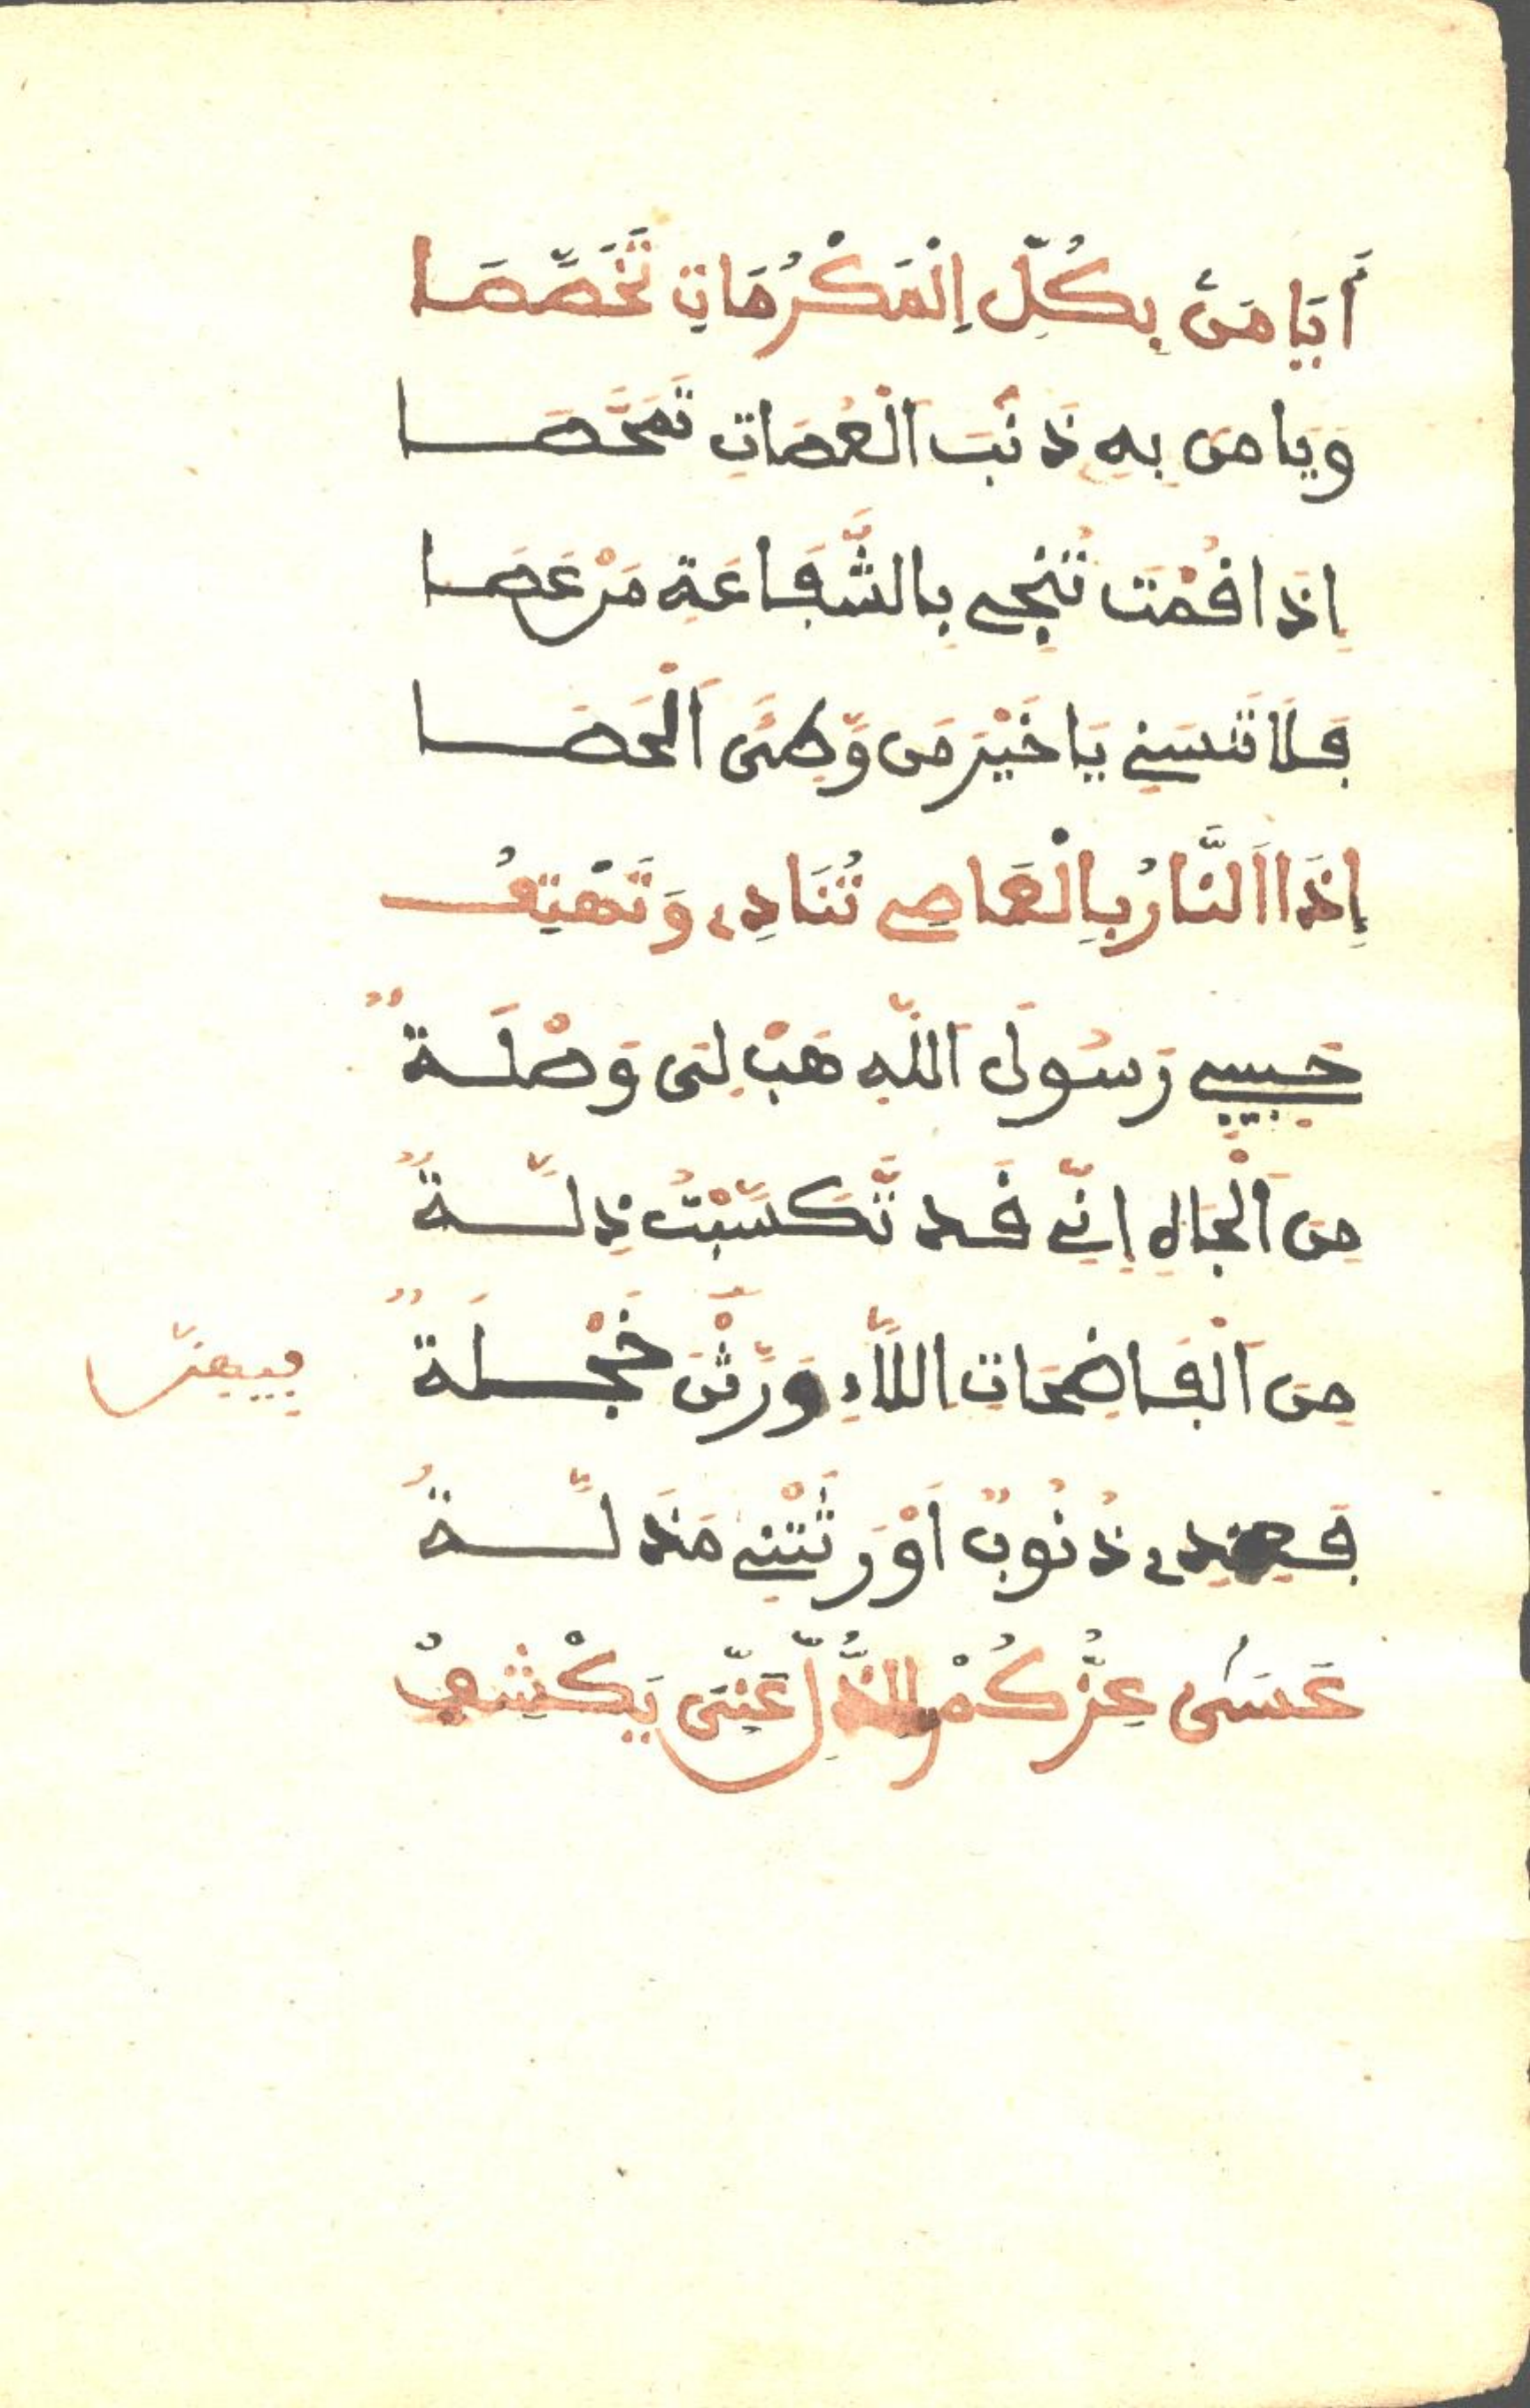 أَيَا مَنْ بِكُلِّ اِلْمَكْرُمَاتِ تَخَصَّصَا
وَيَا مَن بِهِ ذَنْبَ الْعُصَاتِ تَمَحَّصَا
اِذَا قُمْتَ تُنْجِي بِالشَّفَاعَةِ مَنْ عَصَا
فَلَا تَنسَنِي يَا خَيْرَ مَن وَّطِئَى اَلْحَصَا
إِذَا اَلنَّارُ بِالْعَاصِي تُنَادِي وَتَهْتِفُ
حَبِيبِي رَسُولَ اَللَّهِ هَبْ لِى وَصْلَةً
مِنَ اَلْجَاهِ اِنِّي قَد تَّكَسَّبْتُ ذِلَّةً
مِنَ اَلْفَاضِحَاتِ اللَّاءِ وَرَّثْنَ خَجْلَةً
فَعِندِي ذُنُوبٌ اَوْرَثَتْنِي مَذَلَّةُ
عَسَى عِزُّكُمْ لِلذُّلِّ عَنِّى يَكْشِفُ